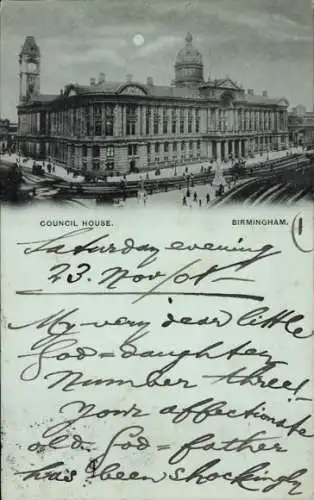 COUNCIL HOUSE. BIRMINGHAM. 1
Saturday evening
23. Nov/01-
My very dear little
God=daughter
Number three!
Your affectionate
old God=father
has been shockingly